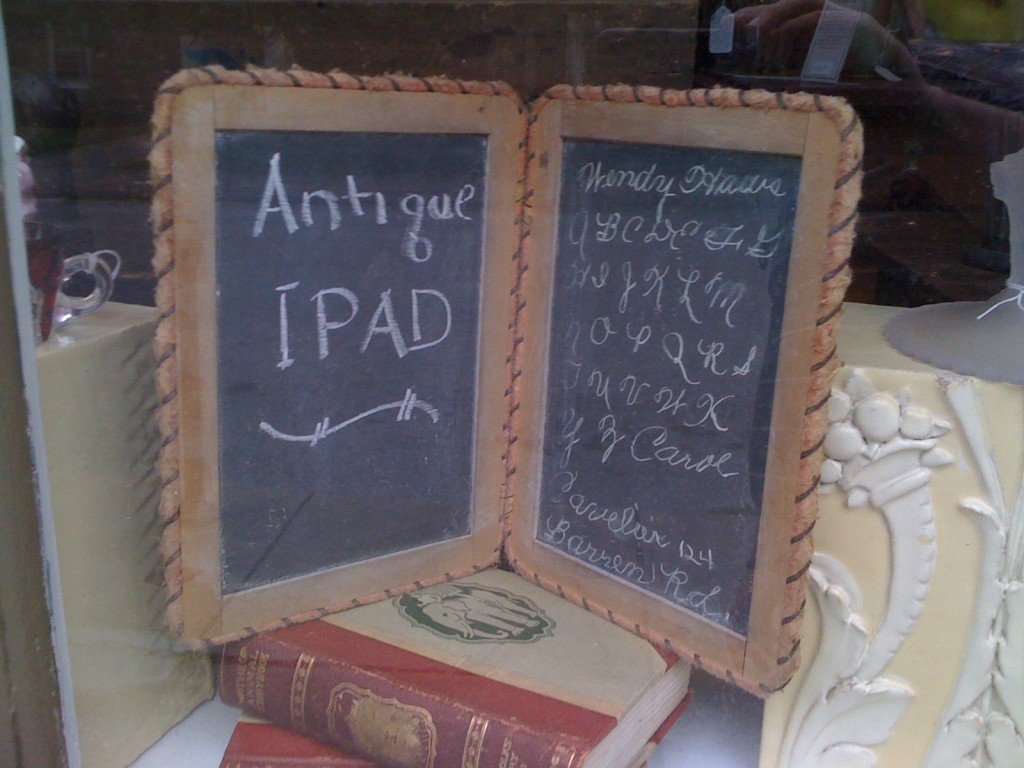 Antique
IPAD
Wendy
A B C D E F G
H I J K L M
N O P Q R S
T U V W X
Y Z Carol
124
Barren Rd